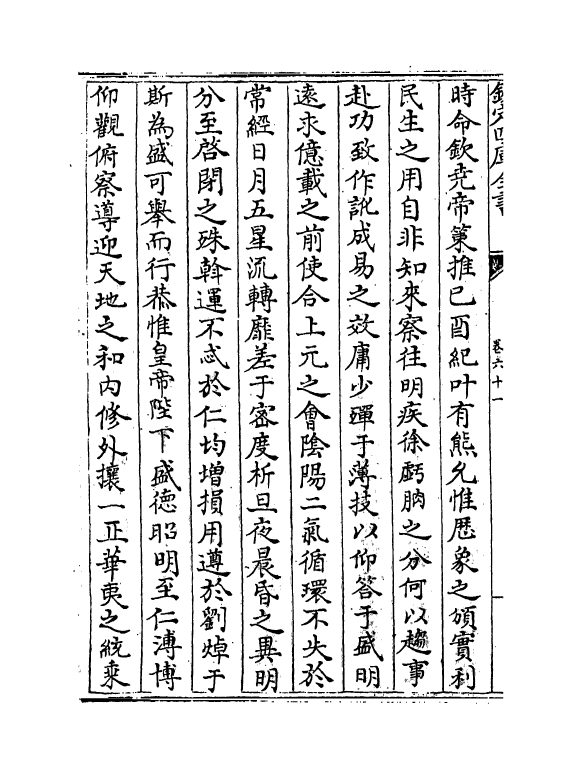 欽定四庫全書
卷六十一
時命欽堯帝策推己酉紀叶有熊允惟歴象之頒實利
民生之用自非知來察往明疾徐虧朒之分何以趨事
赴功致作訛成易之效庸少殫于薄技以仰答于盛明
遠求億載之前使合上元之會陰陽二氣循環不失於
常經日月五星流轉靡差于宻度析旦夜晨昏之異明
分至啓閉之殊斡運不忒於仁均增損用遵於劉焯于
斯為盛可舉而行恭惟皇帝陛下盛徳昭明至仁溥博
仰觀俯察導迎天地之和内修外攘一正華夷之統乘